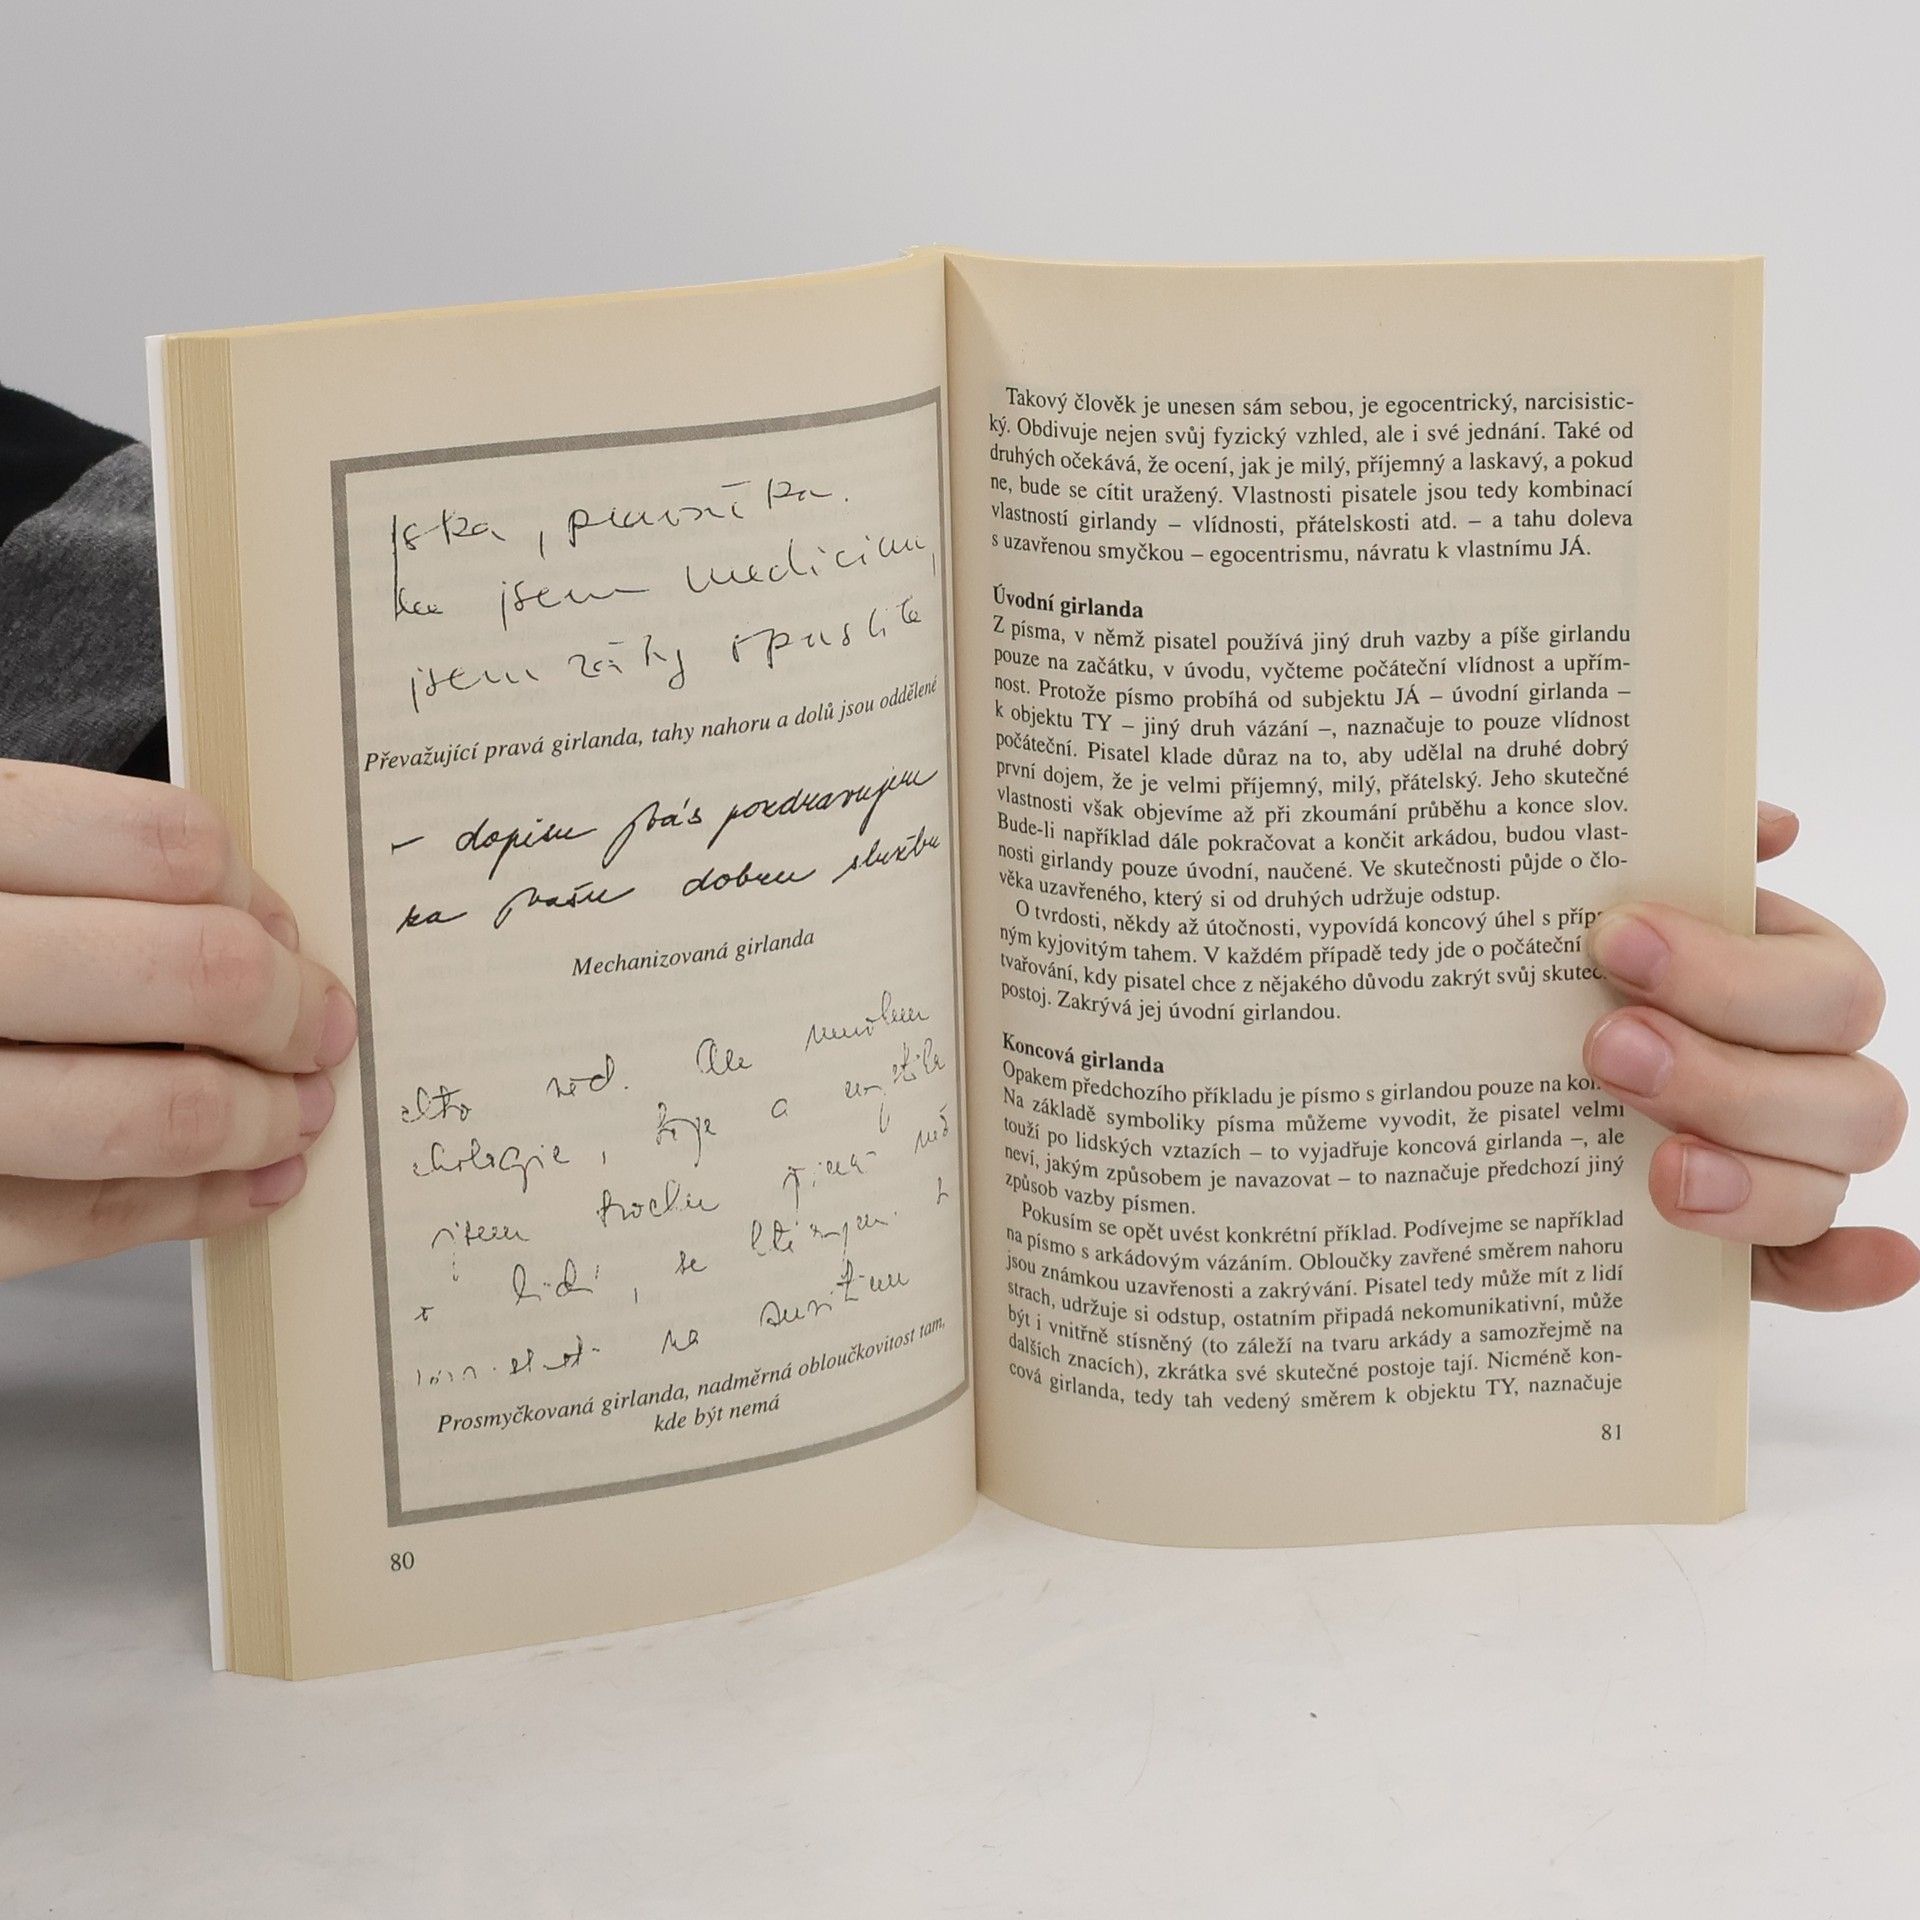 jsem medicinu,
jsem opustila
Převažující pravá girlanda, tahy nahoru a dolů jsou oddělené
– dopisu Vás pozdravujem
za Vašu dobru službu
Mechanizovaná girlanda
rád. Ale
a
jsem trochu
lidí, se
na
Prosmyčkovaná girlanda, nadměrná obloučkovitost tam,
kde být nemá
80
Takový člověk je unesen sám sebou, je egocentrický, narcisistic-
ký. Obdivuje nejen svůj fyzický vzhled, ale i své jednání. Také od
druhých očekává, že ocení, jak je milý, příjemný a laskavý, a pokud
ne, bude se cítit uražený. Vlastnosti pisatele jsou tedy kombinací
vlastností girlandy – vlídnosti, přátelskosti atd. – a tahu doleva
s uzavřenou smyčkou – egocentrismu, návratu k vlastnímu JÁ.
Úvodní girlanda
Z písma, v němž pisatel používá jiný druh vazby a píše girlandu
pouze na začátku, v úvodu, vyčteme počáteční vlídnost a upřím-
nost. Protože písmo probíhá od subjektu JÁ – úvodní girlanda –
k objektu TY – jiný druh vázání –, naznačuje to pouze vlídnost
počáteční. Pisatel klade důraz na to, aby udělal na druhé dobrý
první dojem, že je velmi příjemný, milý, přátelský. Jeho skutečné
vlastnosti však objevíme až při zkoumání průběhu a konce slov.
Bude-li například dále pokračovat a končit arkádou, budou vlast-
nosti girlandy pouze úvodní, naučené. Ve skutečnosti půjde o člo-
věka uzavřeného, který si od druhých udržuje odstup.
O tvrdosti, někdy až útočnosti, vypovídá koncový úhel s
ným kyjovitým tahem. V každém případě tedy jde o počáteční
tvařování, kdy pisatel chce z nějakého důvodu zakrýt svůj
postoj. Zakrývá jej úvodní girlandou.
Koncová girlanda
Opakem předchozího příkladu je písmo s girlandou pouze na
Na základě symboliky písma můžeme vyvodit, že pisatel velmi
touží po lidských vztazích – to vyjadřuje koncová girlanda –, ale
neví, jakým způsobem je navazovat – to naznačuje předchozí jiný
způsob vazby písmen.
Pokusím se opět uvést konkrétní příklad. Podívejme se například
na písmo s arkádovým vázáním. Obloučky zavřené směrem nahoru
jsou známkou uzavřenosti a zakrývání. Pisatel tedy může mít z lidí
strach, udržuje si odstup, ostatním připadá nekomunikativní, může
být i vnitřně stísněný (to záleží na tvaru arkády a samozřejmě na
dalších znacích), zkrátka své skutečné postoje tají. Nicméně kon-
cová girlanda, tedy tah vedený směrem k objektu TY, naznačuje
81